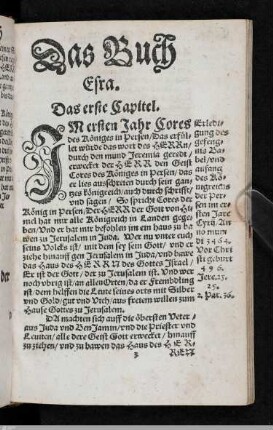 Das Buch
Esra.
Das erste Capitel.
IM ersten Jahr Cores
des Königes in Persen / Das erfül-
let würde das wort des HERRN /
durch den mund Jeremia geredt /
erwecket der HERR den Geist
Cores des Königes in Persen, das
er lies ausschreien durch sein gan-
tzes Königreich, auch durch schrifft,
und sagen / So spricht Cores der
König in Persen, Der HERR der Gott von Hi-
mel hat mir alle Königreich in Landen gege-
ben / Und er hat mir befohlen im ein haus zu ba-
wen zu Jerusalem in Juda. Wer nu unter euch
seines Volcks ist / mit dem sey sein Gott / und er
ziehe hinauff gen Jerusalem in Juda / und bawe
das Haus des HERRN des Gottes Israel /
Er ist der Gott / der zu Jerusalem ist. Und wer
noch ubrig ist / an allen Orten / da er Frembdling
ist / dem helffen die Leute seines orts mit Silber
und Gold / gut und Vieh / aus freiem willen zum
Hause Gottes zu Jerusalem.
DA machten sich auff die öbersten Veter /
aus Juda und BenJamin / und die Priester und
Leuiten / alle dere Geist Gott erwecket / hinauff
zu ziehen / und zu bawen das Haus des HER-
RIEN
Erledi-
gung des
gefeng-
nis Ba-
bel / und
anfang
des Kö-
nigreichs
der Per-
sen im er-
sten Jare
Cyri An-
no mun
di 3464.
Vor Chri
sti geburt
496.
Jere. 25.
2. Par. 36.